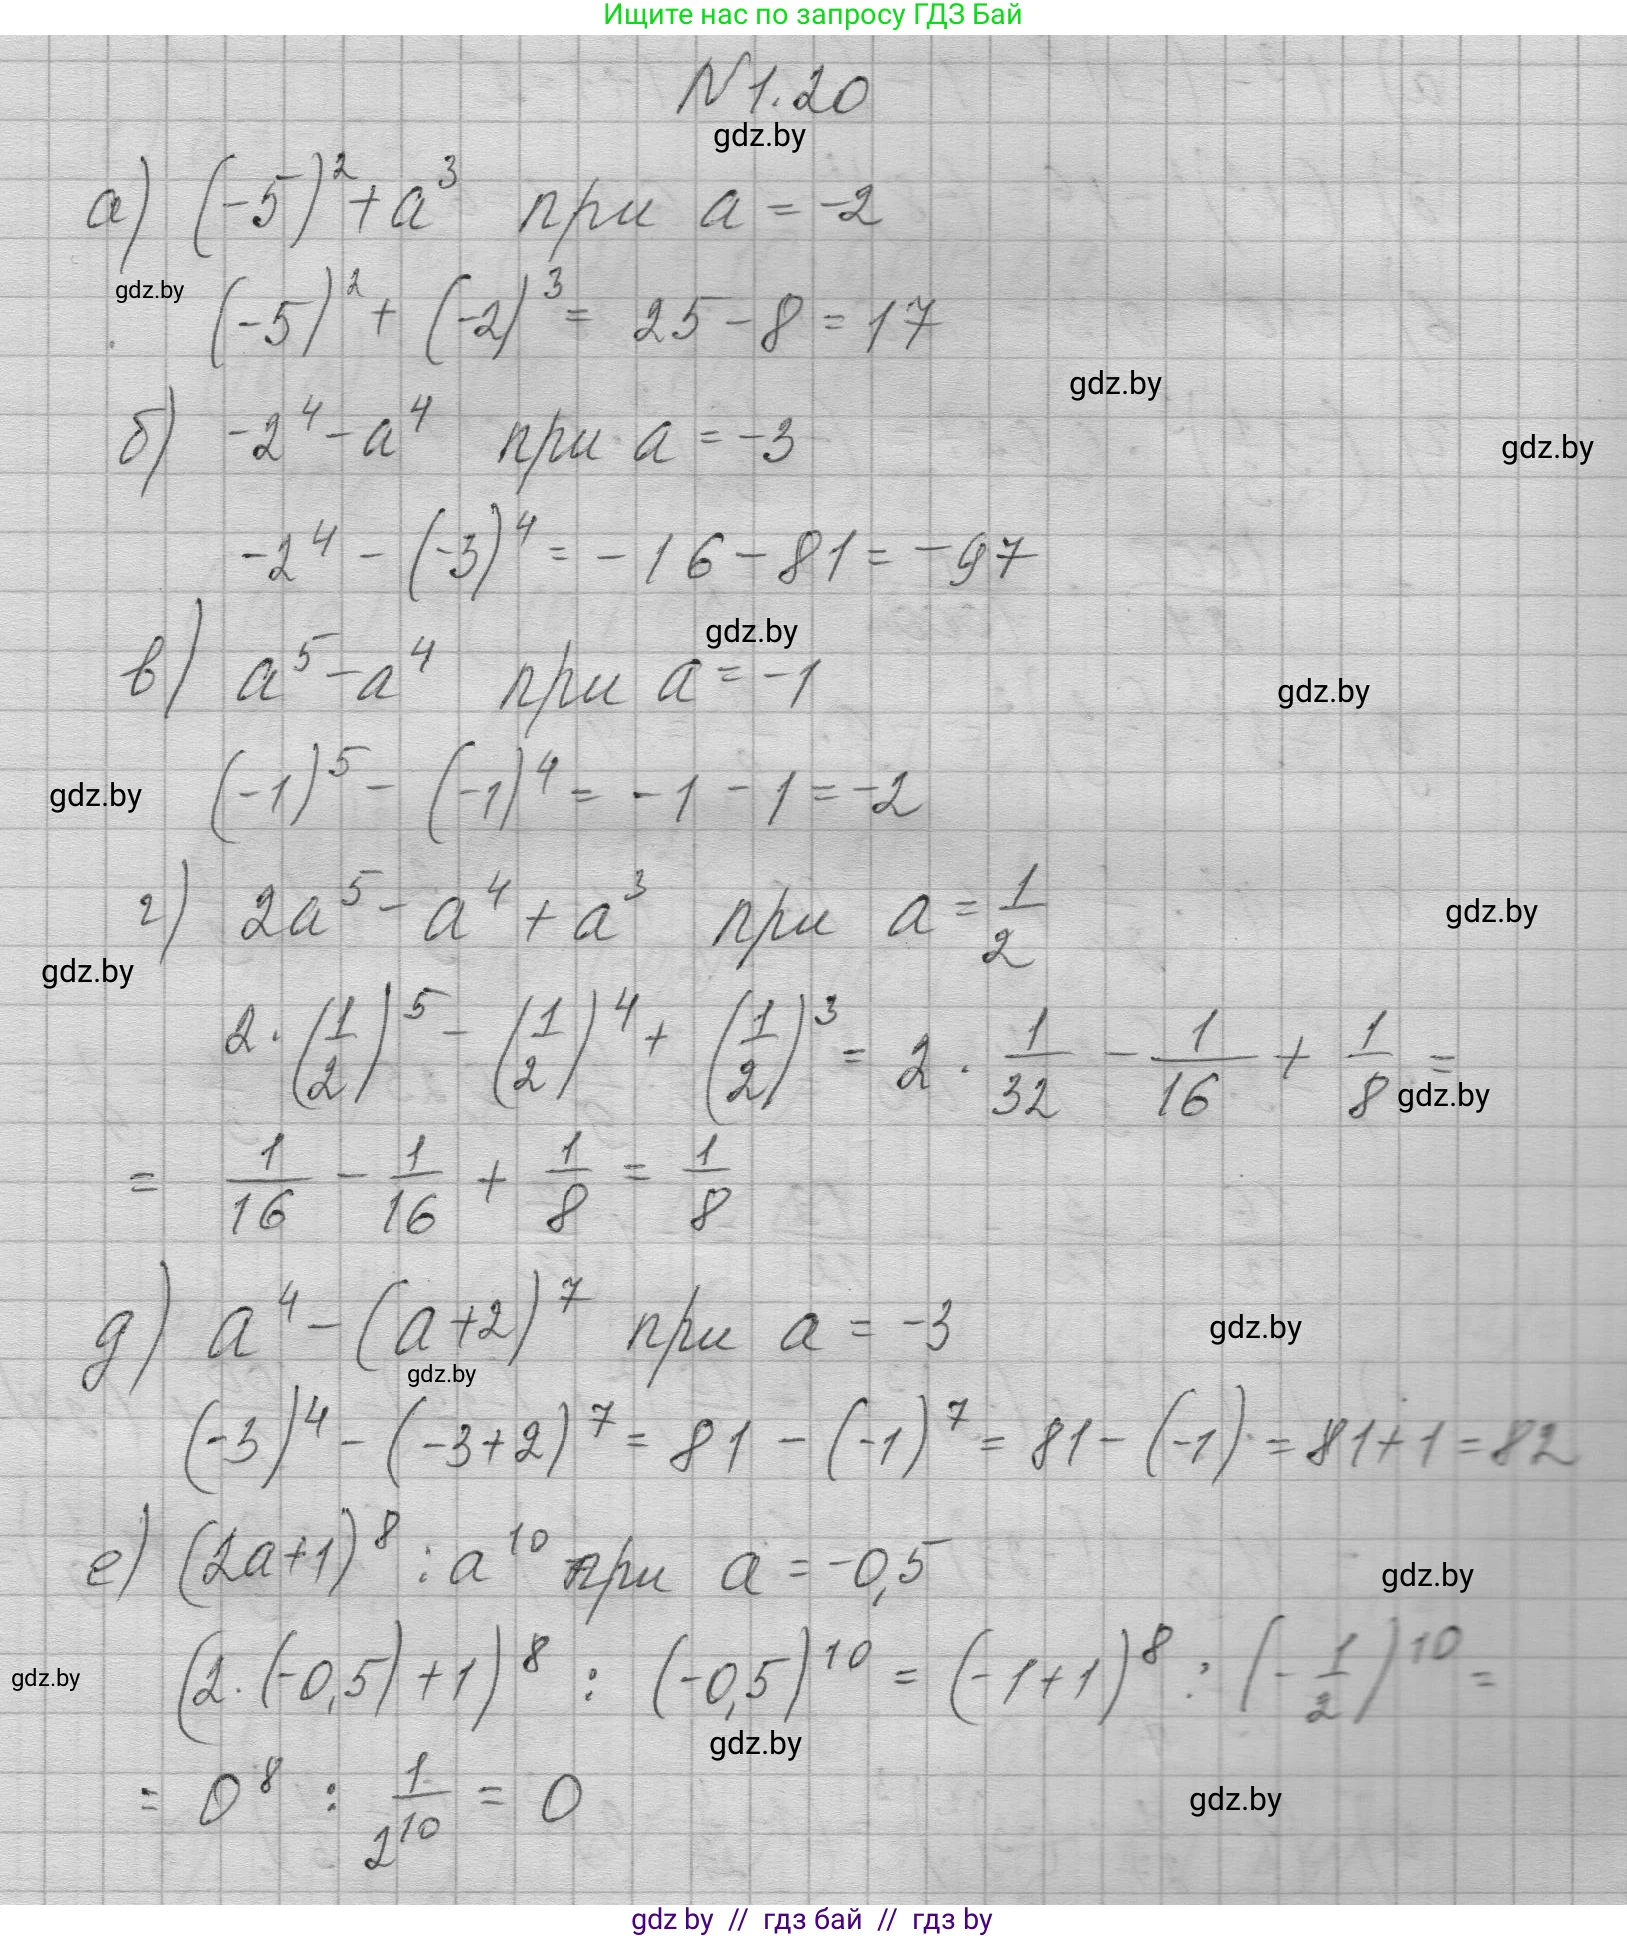 Ищите нас по запросу ГДЗ Бай
N 1.20
gdz.by
а) (-5)² + a³ при a = -2
gdz.by
(-5)² + (-2)³ = 25 - 8 = 17
gdz.by
б) -2⁴ - a⁴ при a = -3
gdz.by
-2⁴ - (-3)⁴ = -16 - 81 = -97
gdz.by
в) a⁵ - a⁴ при a = -1
gdz.by
(-1)⁵ - (-1)⁴ = -1 - 1 = -2
gdz.by
г) 2a⁵ - a⁴ + a³ при a = 1/2
gdz.by
gdz.by
2 · (1/2)⁵ - (1/2)⁴ + (1/2)³ = 2 · 1/32 - 1/16 + 1/8 =
gdz.by
= 1/16 - 1/16 + 1/8 = 1/8
д) a⁴ - (a+2)⁷ при a = -3
gdz.by
gdz.by
(-3)⁴ - (-3+2)⁷ = 81 - (-1)⁷ = 81 - (-1) = 81 + 1 = 82
е) (2a+1)⁸ : a¹⁰ при a = -0,5
gdz.by
(2 · (-0,5) + 1)⁸ : (-0,5)¹⁰ = (-1+1)⁸ : (-1/2)¹⁰ =
gdz.by
gdz.by
= 0⁸ : 1/2¹⁰ = 0
gdz.by
gdz by // гдз бай // гдз by